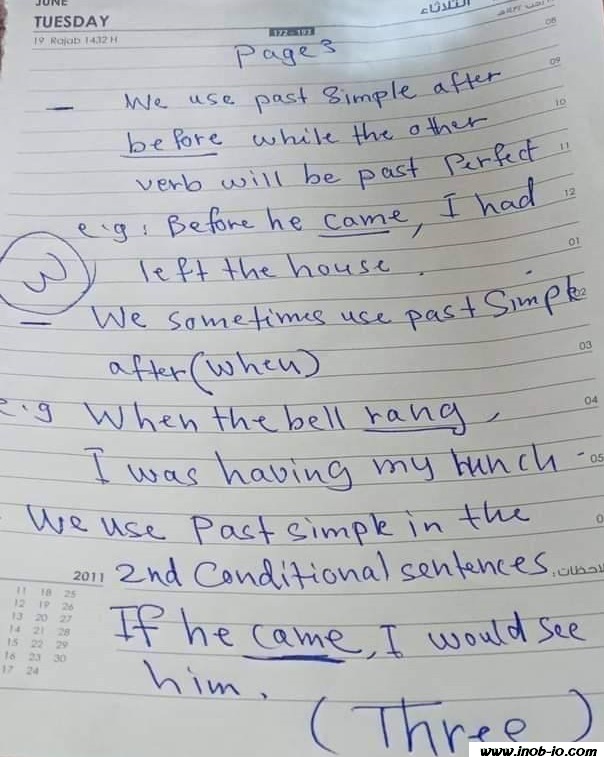 JUNE
TUESDAY
19 Rajab 1432 H
172-193
الثلاثاء
Page 3
08
09
— We use past simple after
10
before while the other
11
verb will be past Perfect
12
e.g: Before he came, I had
01
left the house.
— We sometimes use past Simple
02
after (when)
03
e.g When the bell rang,
04
I was having my lunch -
05
We use Past simple in the
2011 2nd Conditional sentences.
11 18 25
12 19 26
13 20 27
14 21 28
15 22 29
16 23 30
17 24
If he came, I would see
him.
(Three)
www.inob-io.com